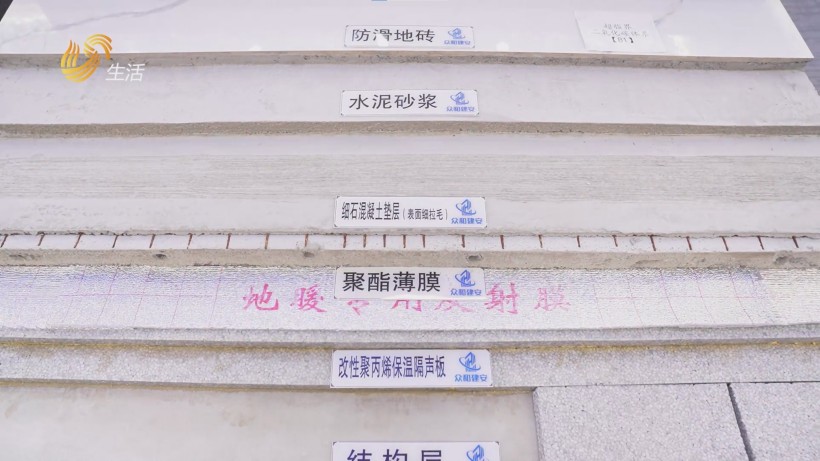 防滑地砖
众和建安
生活
水泥砂浆
众和建安
细石混凝土垫层（表面细拉毛）
众和建安
聚酯薄膜
众和建安
地暖专用反射膜
改性聚丙烯保温隔声板
众和建安
结构层